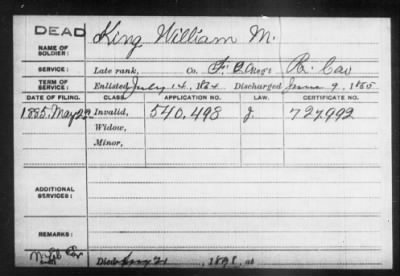 DEAD
NAME OF SOLDIER: King William M.
SERVICE: Late rank, Co. F. 2 Reg't R. Cav
TERM OF SERVICE: Enlisted July 14, 1864 Discharged June 9, 1865
DATE OF FILING. CLASS. APPLICATION NO. LAW. CERTIFICATE NO.
1885. May Invalid, 540,498 J. 727,992
Widow,
Minor,
ADDITIONAL SERVICES:
REMARKS:
Died 21, 1898, at